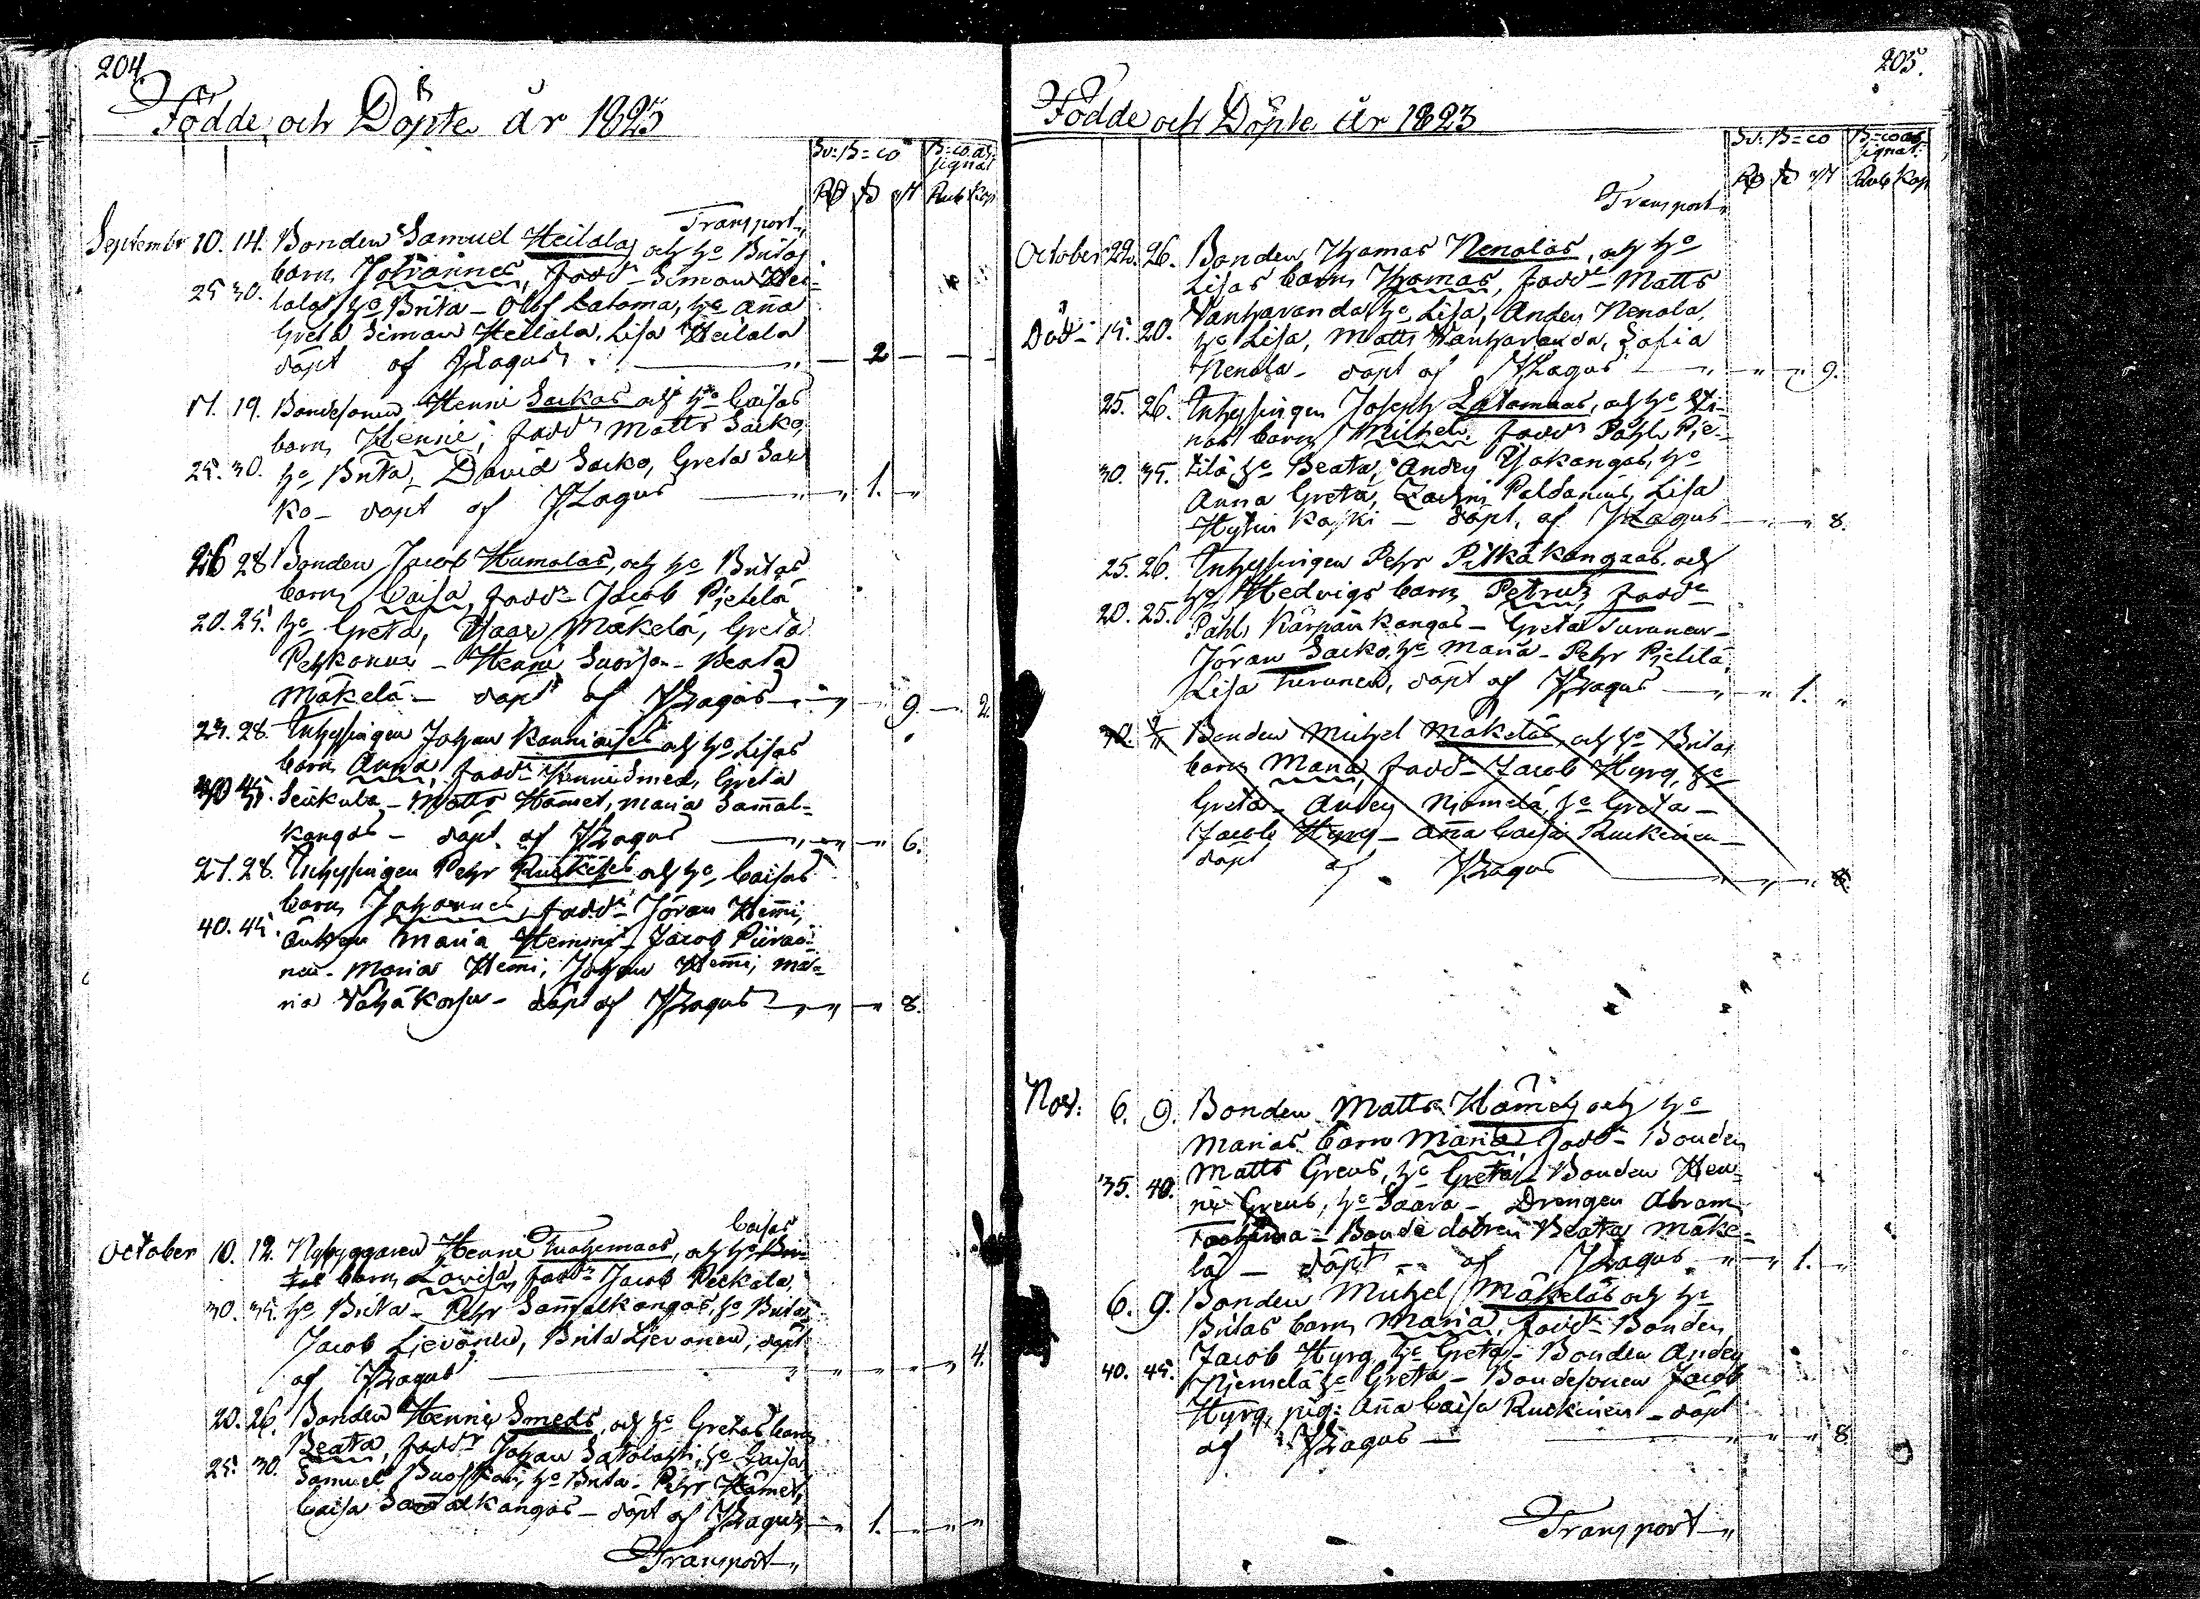 204.
Födde och Döpte år 1823
Sv: B=co B=co as-
signat
Rd ß rst Rub Kop
Transport
September 10. 14. Bonden Samuel Heilalas och h:o Britas
barn Johannes, fadd:r Simon Hei-
25 30. lala h:o Brita – Olof Latoma, h:o Aña
Greta Siman Heilala, Lisa Heilala
döpt af JLagus – 2 – –
17. 19. Bondesonen Henric Sackos och h:o Caisas
barn Henric, fadd:r Matts Sacko,
25. 30. h:o Brita, David Sacko, Greta Sac
ko – döpt af JLagus – 1.
26 28 Bonden Jacob Humalas, och h:o Britas
barn Caisa, fadd:r Jacob Pietilä
20. 25. h:o Greta, Isaac Mäkelä, Greta
– Henric – Beata
Mäkelä – döpt af JLagus – 9. – 2.
23. 28. Inhysingen Johan och h:o Lisas
barn Anna, fadd:r Henric Smed, Greta
– Matts Hämet, Maria Sam̃al-
kangas – döpt af JLagus – 6.
27. 28. Inhysingen Pehr och h:o Caisas
barn Johannes, fadd:r Jöran Hem̃i,
40. 45. Änkan Maria Hemmi – Jacob Piirai-
nen – Maria Hem̃i, Johan Hem̃i, Ma-
ria Vähäkorhu – döpt af JLagus – 8.
Caisas
October 10. 12. Nybyggaren Henric och h:o Bri-
tas barn Lovisa, fadd:r Jacob Peckala,
30. 35. h:o Brita – Pehr Sam̃alkangas, h:o Brita
Jacob Lievonen, Brita Lievonen, döpt
af JLagus – 4.
20. 26. Bonden Henric Smeds, och h:o Gretas barn
Beata, fadd:r Johan Satolahti, h:o Caisa
25. 30. Samuel h:o Brita – Pehr Hämet,
Caisa Sam̃alkangas – döpt af JLagus – 1.
Transport
205.
Födde och Döpte år 1823
Sv: B=co B=co as-
signat:
Rd ß rst Rub Kop
Transport
October 22. 26. Bonden Thomas Nenolas, och h:o
Lisas barn Thomas, fadd:r Matts
Vanhavanda h:o Lisa, Anders Nenola,
Död – 15. 20. h:o Lisa, Matts Vanhavanda, Sofia
Nenola – döpt af JLagus – 9.
25. 26. Inhysingen Joseph Latomaas, och h:o Sti-
nas barn Michel, fadd:r Påhl Pie-
30. 35. tilä h:o Beata, Anders Yokangas, h:o
Anna Greta, Zachris Paldanius, Lisa
– döpt af JLagus – 8.
25. 26. Inhysingen Pehr Pitkäkangaas, och
h:o Hedvigs barn Petrus, fadd:r
20. 25. Påhl Kärpänkangas – Greta Turunen –
Jöran Sacko, h:o Maria – Pehr Pietilä,
Lisa Turunen, döpt af JLagus – 1.
30. 2/11 Bonden Michel Mäkeläs, och h:o Britas
barn Maria, fadd:r Jacob Hyry, h:o
Greta – Anders Niemelä, h:o Greta –
Jacob Hyry – Aña Caisa Ruckinen –
döpt af JLagus – 8.
Nov: 6. 9. Bonden Matts Hämets och h:o
Marias barn Maria, fadd:r Bonden
Matts Greus, h:o Greta – Bonden Hen-
35. 40. ric Greus, h:o Saara – Drengen Abram
– Bonde dotren Beata Mäke-
lä – döpt af JLagus – 1.
6. 9. Bonden Michel Mäkeläs och h:o
Britas barn Maria, fadd:r Bonden
Jacob Hyry h:o Greta – Bonden Anders
40. 45. Niemelä h:o Greta – Bondesonen Jacob
Hyry, pig: Aña Caisa Ruckinen – döpt
af JLagus – 8
Transport